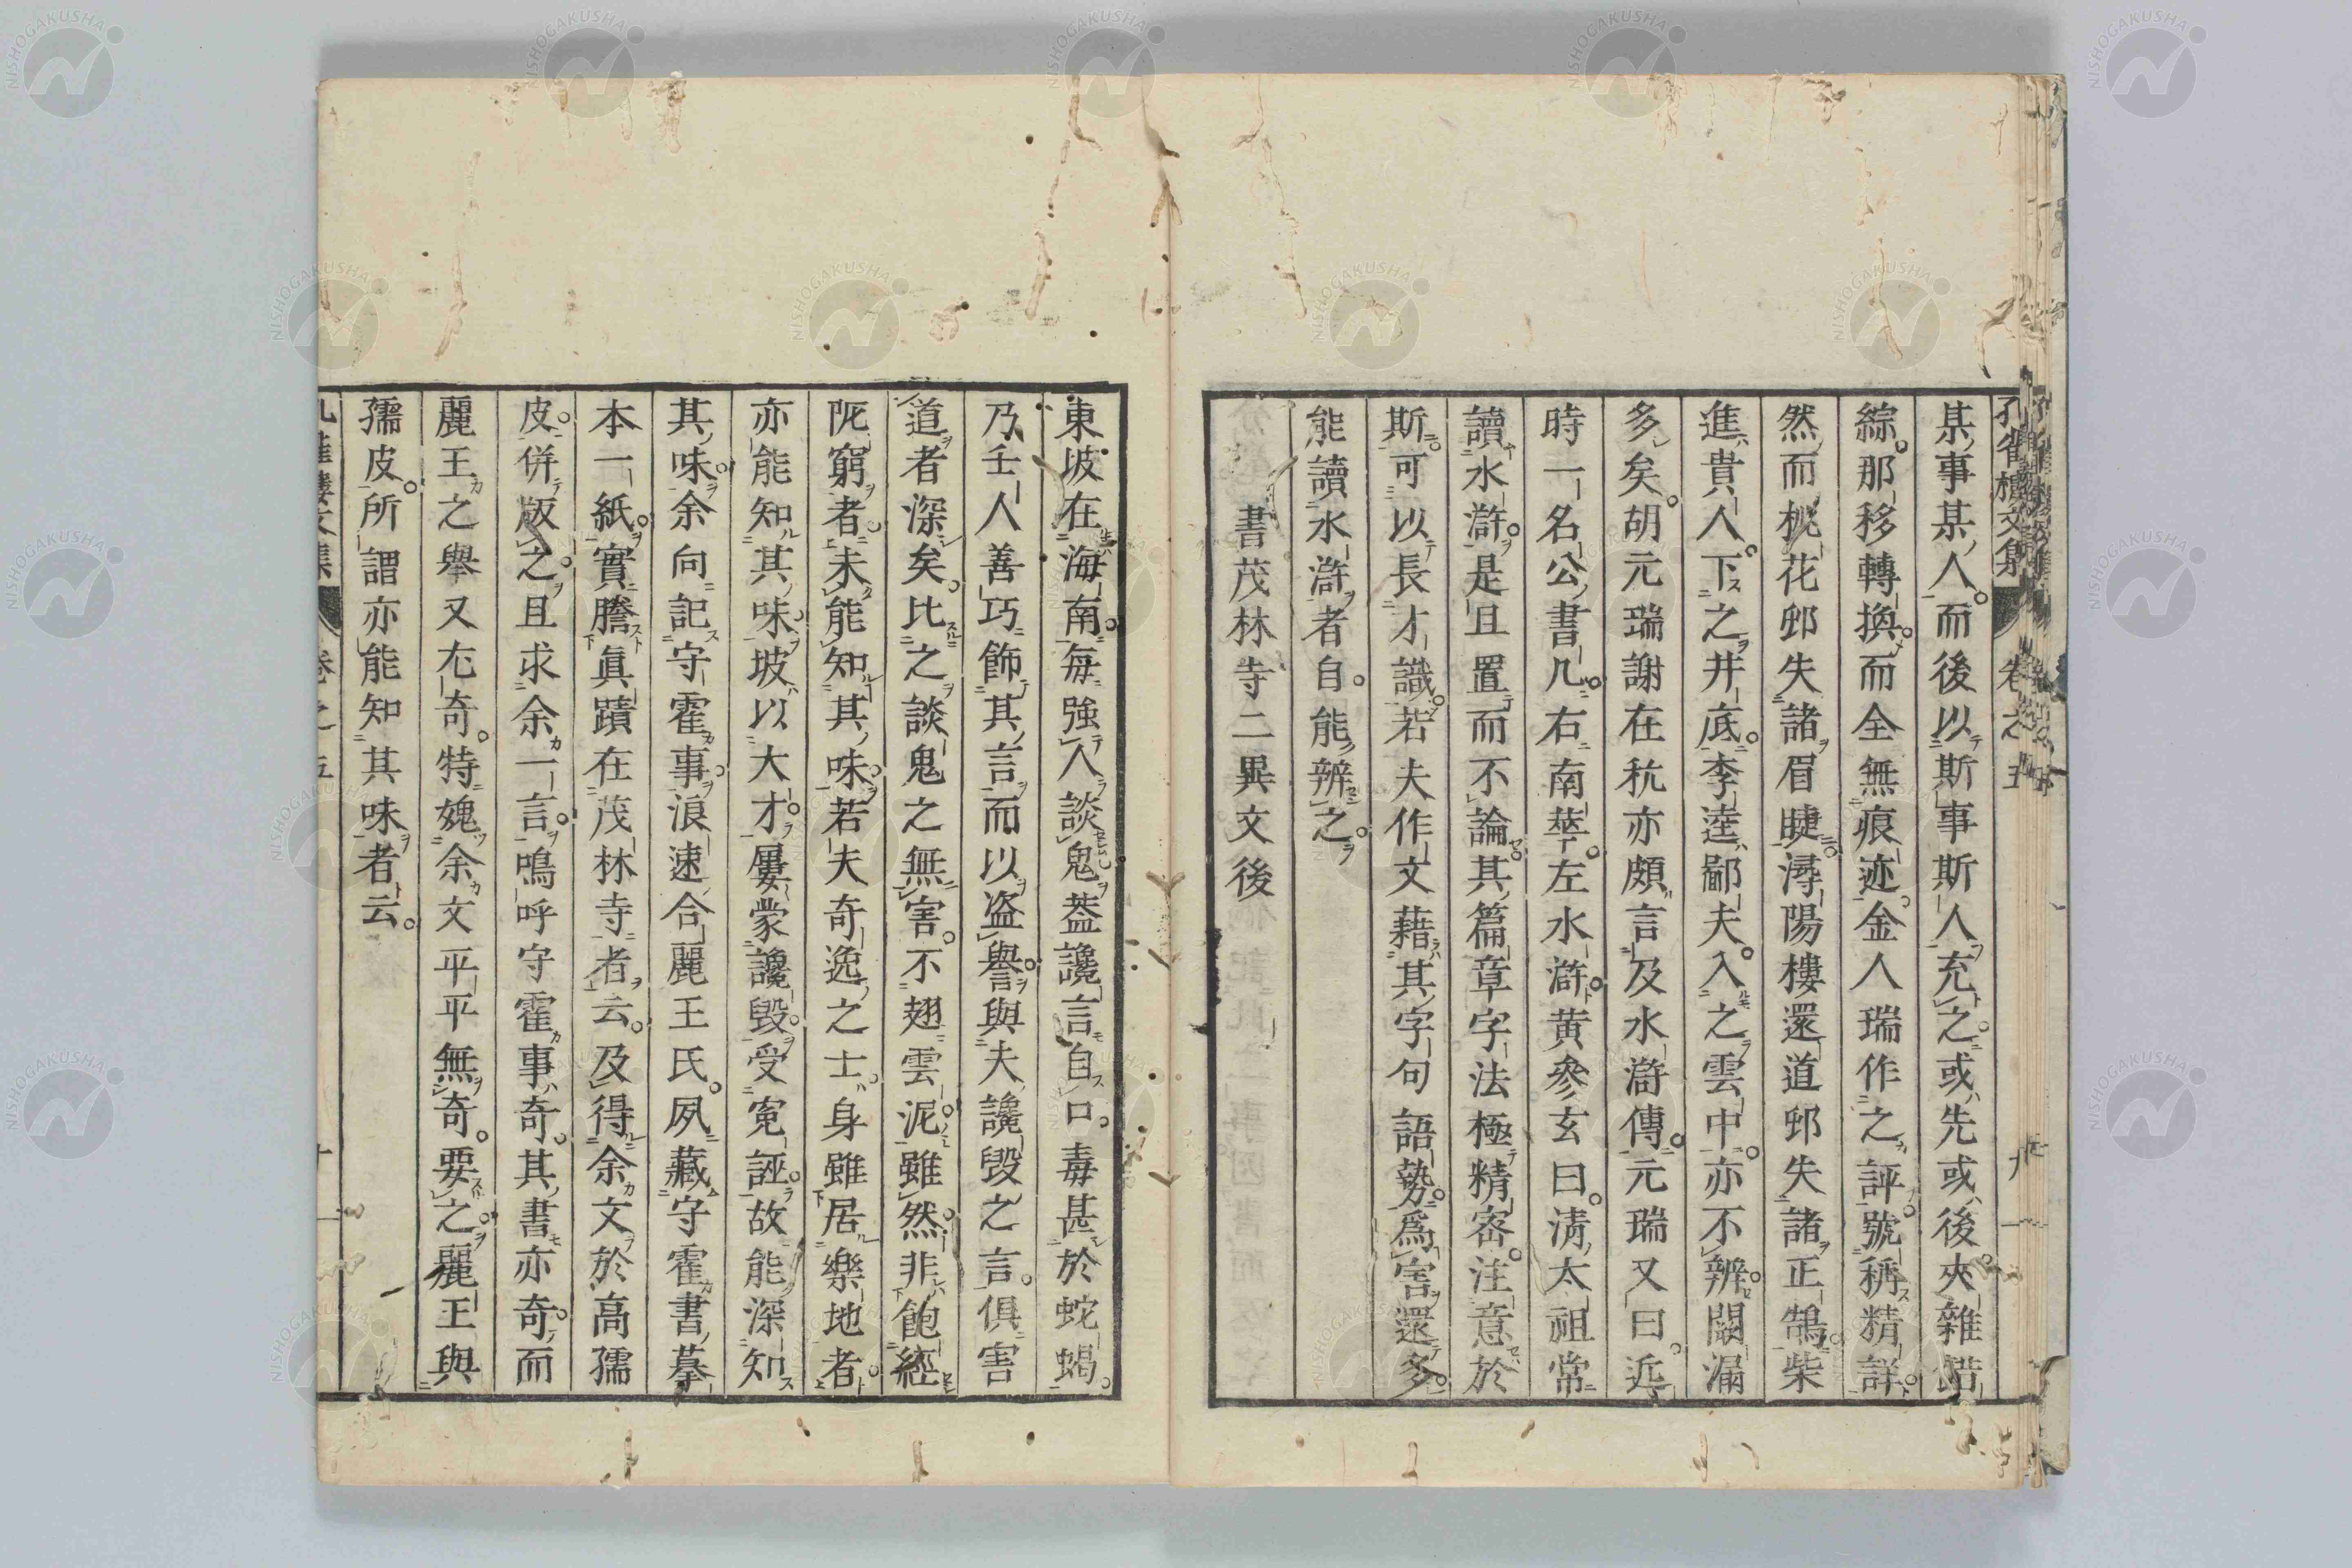 孔雀樓文集 卷之五
某事某人而後以斯事斯人充之或先或後夾雜錯
綜那移轉換而全無痕迹金人瑞作之評號稱精詳
然而桃花邨失諸眉睫潯陽樓還道邨失諸正鵠柴
進貴人下之井底李逵鄙夫入之雲中亦不辨關漏
多矣胡元瑞謝在杭亦頗言及水滸傳元瑞又曰近
時一名公書几右南華左水滸黄參玄曰淸太祖常
讀水滸是且置而不論其篇章字法極精密注意於
斯可以長才識若夫作文藉其字句語勢爲害還多
能讀水滸者自能辨之
書茂林寺二異文後
東坡在海南每強人談鬼葢讒言自口毒甚於蛇蝎
乃壬人善巧飾其言而以盗譽與夫讒毀之言俱害
道者深矣比之談鬼之無害不翅雲泥雖然非飽經
阨窮者未能知其味若夫奇逸之士身雖居樂地者
亦能知其味坡以大才屢蒙讒毀受寃誣故能深知
其味余向記守霍事浪速合麗王氏夙藏守霍書摹
本一紙實謄眞蹟在茂林寺者云及得余文於高孺
皮併版之且求余一言嗚呼守霍事奇其書亦奇而
麗王之舉又尢奇特媿余文平平無奇要之麗王與
孺皮所謂亦能知其味者云
卷之五
NISHOGAKUSHA